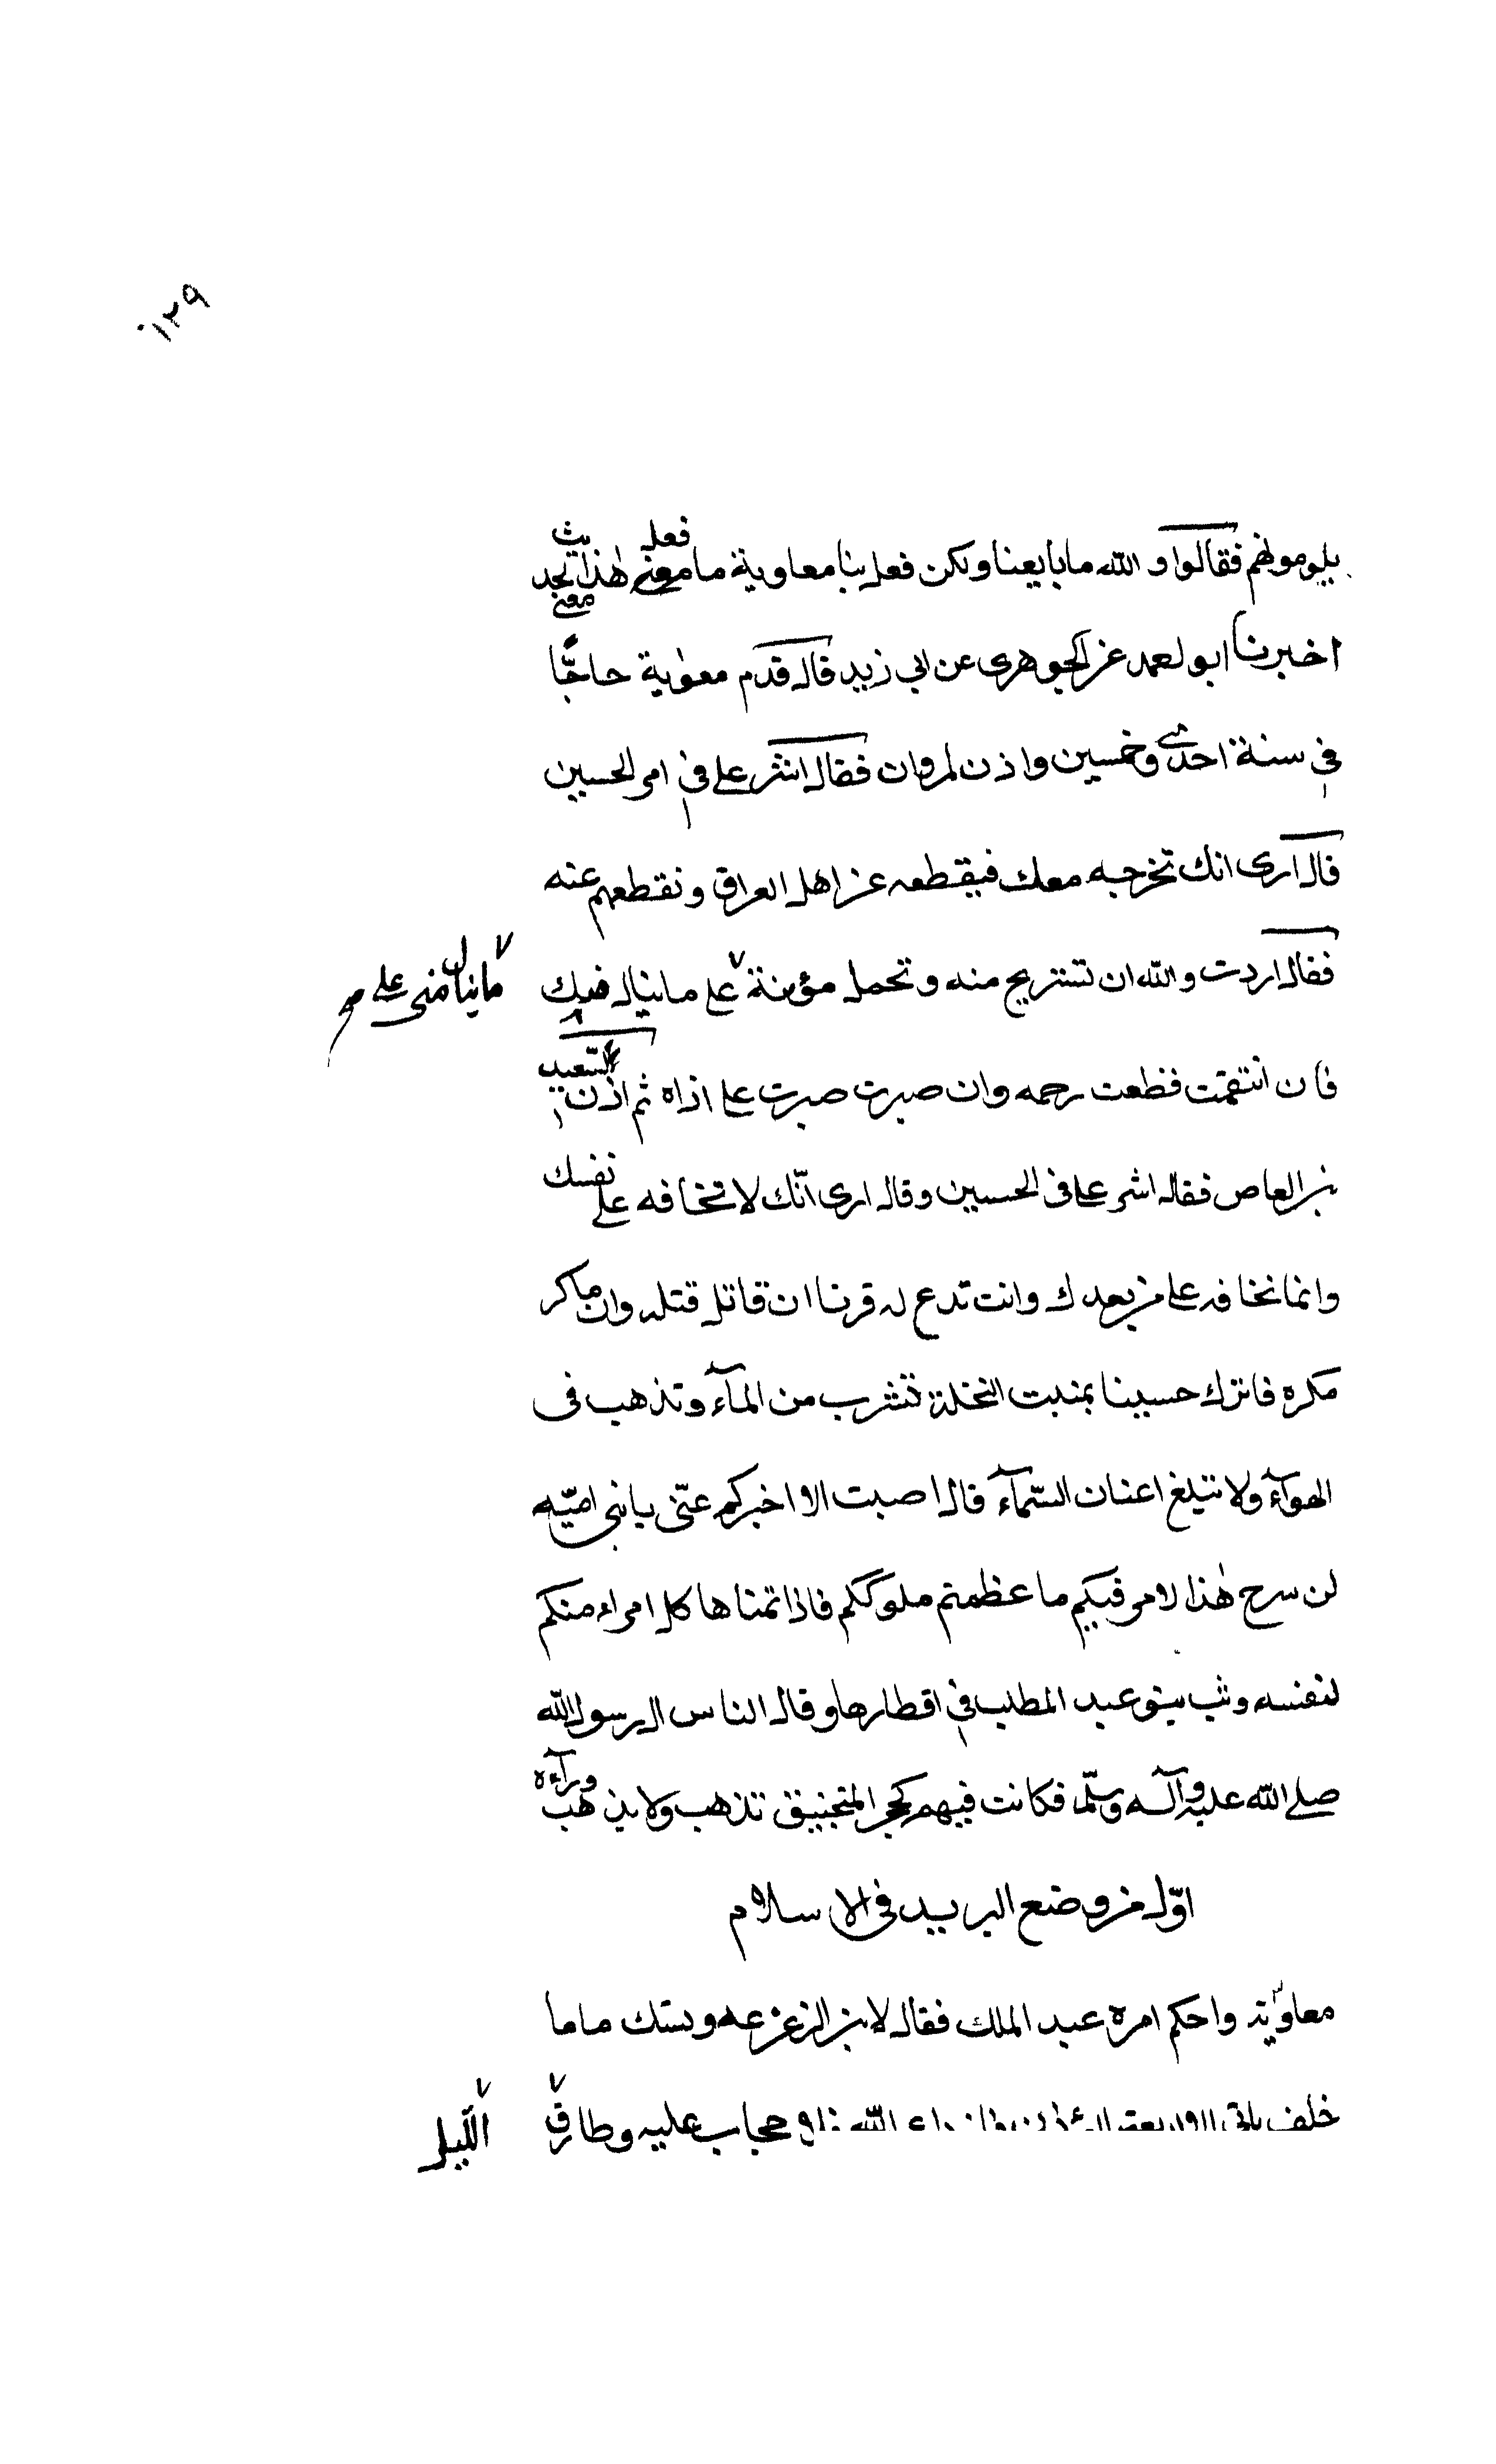 ١٢٩
يلومونهم فقالوا والله ما بايعنا ولكن فعل بنا معاوية ما فعله معنى هذا الحديث
اخبرنا ابو احمد عن الجوهرى عن ابى زيد قال قدم معوية حاجًّا
فى سنة احدى وخمسين واذن لمروان فقال اشر على فى امر الحسين
قال ارى انك تخرجه معك فيقطعه عن اهل العراق ونقطعهم عنه
فقال اردت والله ان تستريح منه وتحمل مؤنة على ما ينال فيك
ما ينال منى على
فان انتقمت قطعت رحمه وان صبرت صبرت على اذاه ثم اذن لسعيد
بن العاص فقال اشر على فى الحسين وقال ارى انّك لا تخافه على نفسك
وانما نخافه على من بعدك وانت تدع له قرنا ان قاتل قتله وان ماكر
مكره فاترك حسينا بمنبت النخلة تشرب من المآء وتذهب فى
الهوآء ولا تبلغ اعنان السّمآء قال اصبت الا اخبركم عنّى يا بنى اميّه
لن سرح هذا لامر فيكم ما عظمتم ملوككم فاذا تمناها كل امراء منكم
لنفسه وثب بنو عبد المطلب فى اقطارها وقال الناس ال رسول الله
صلى الله عليه وآله وسلّم فكانت فيهم كحجر المنجنيق تذهب ولا يذهب ورآءه
اوّل من وضع البريد فى الاسلام
معاوية واحكم امره عبد الملك فقال لابن الزعزعه وستك ما ما
خلف بابى الله حجاب عليه وطارق
اللّيل